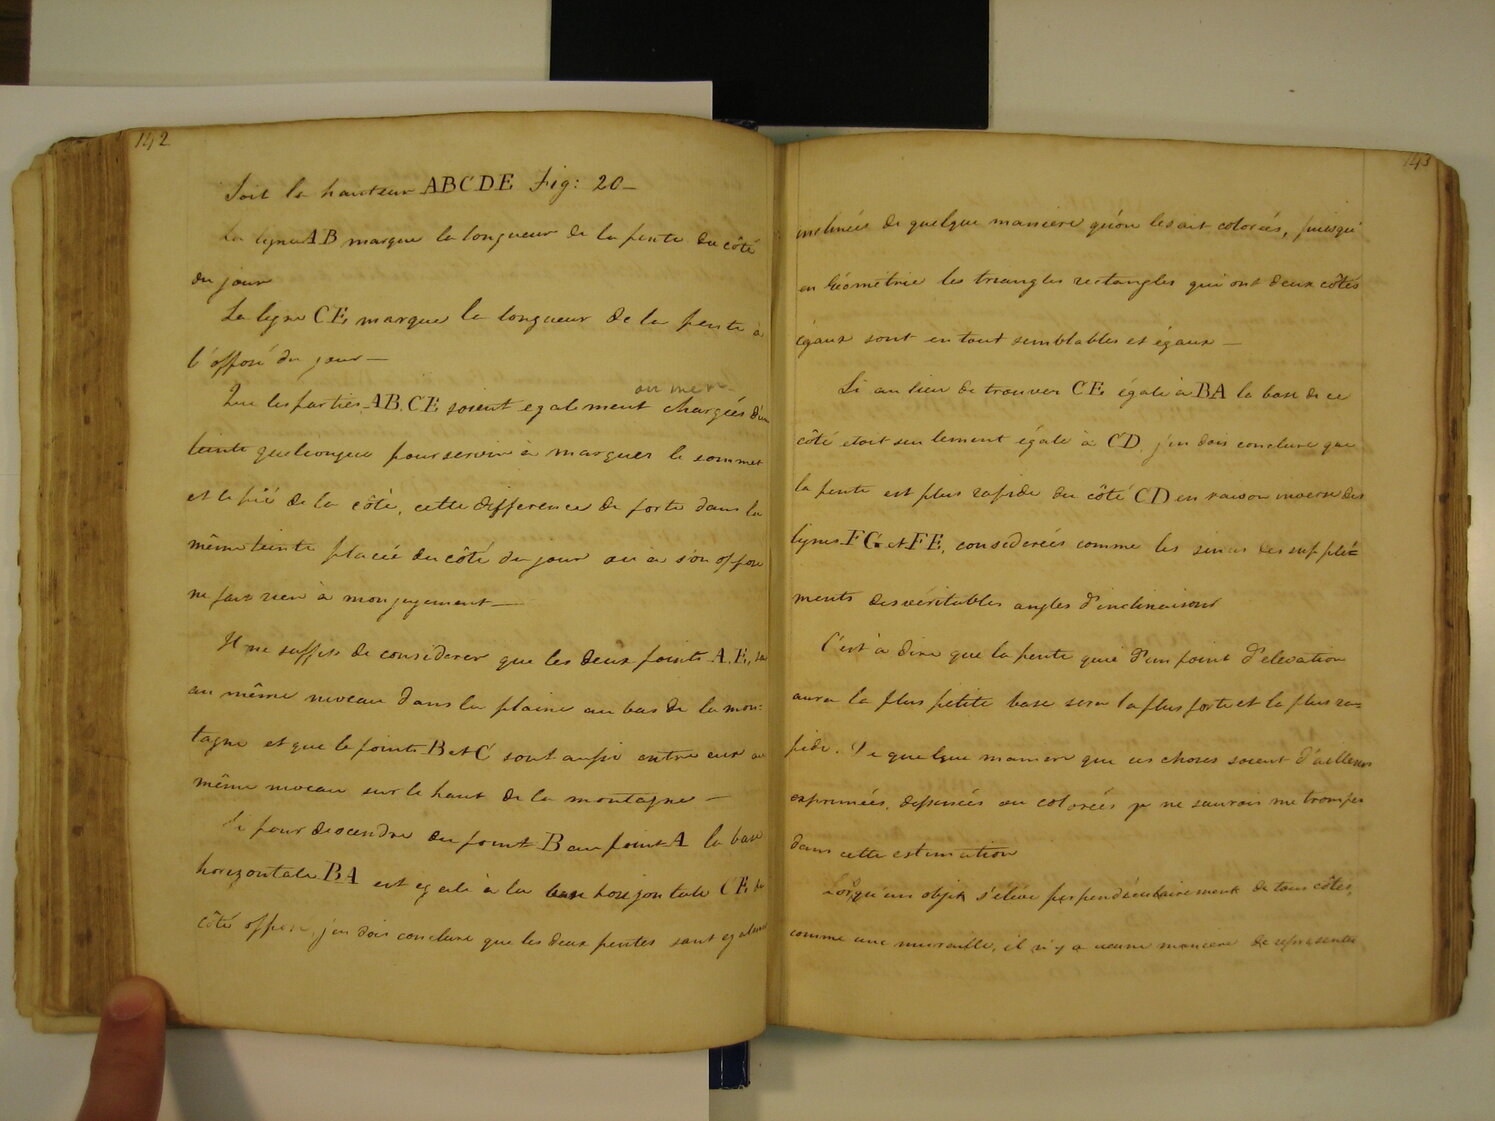 142
Soit la hauteur ABCDE Fig: 20 —
La ligne AB marque la longueur de la pente du côté
du jour
La ligne CE, marque la longueur de la pente à
l'opposé du jour —
Que les parties AB, CE, soient egalement chargées d'une
teinte quelconque pour servir à marquer le sommet
et le pié de la côte, cette difference de forte dans la
même teinte placée du côté du jour ou à son opposé
ne fait rien à mon jugement —
Il me suffise de considerer que les deux points A, E,
au même niveau dans la plaine au bas de la mon:
tagne et que le points B et C sont aussi entre eux au
même niveau sur le haut de la montagne —
Si pour descendre du point B au point A la base
horizontale BA est egale à la base horizontale CE du
côté opposé, j'en dois conclure que les deux pentes sont egalement
143
inclinées de quelque maniere qu'on les ait colorées, puisqu'
en Géométrie les triangles rectangles qui ont deux côtés
égaux sont en tout semblables et égaux —
Si au lieu de trouver CE, égale à BA la base de ce
côté etoit seulement égale à CD, j'en dois conclure que
la pente est plus rapide du côté CD en raison inverse des
lignes FG et FE, considerées comme les sinus des supplé=
ments des véritables angles d'inclinaisons
C'est à dire que la pente qui d'un point d'elevation
aura la plus petite base sera la plus forte et la plus ra=
pide. De quelque maniere que ces choses soient d'ailleurs
exprimées, dessinées ou colorées je ne saurois me tromper
dans cette estimation
Lorsqu'un objet s'éleve perpendiculairement de tous côtés,
comme une muraille, il n'y a aucune maniere de representer